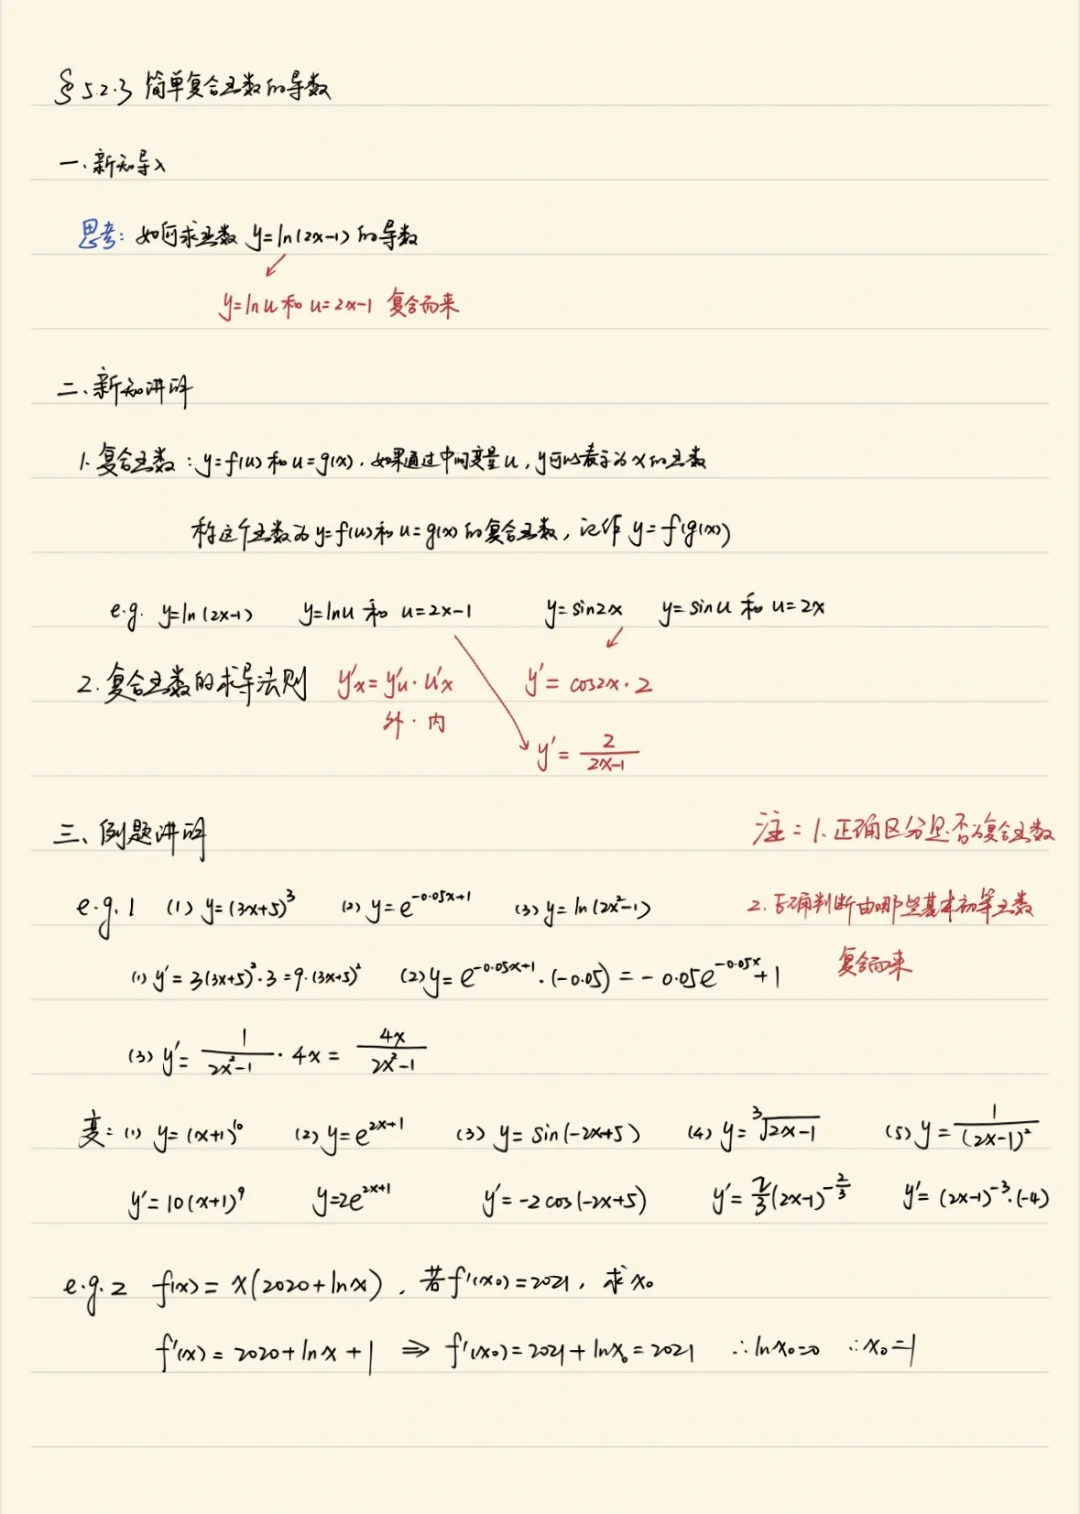 § 5.2.3 简单复合函数的导数
一. 新知导入
思考: 如何求函数 y=ln(2x-1) 的导数
y=lnu 和 u=2x-1 复合而来
二、新知讲解
1. 复合函数: y=f(u) 和 u=g(x), 如果通过中间变量u, y可以表示为x的函数
称这个函数为 y=f(u)和 u=g(x) 的复合函数, 记作 y=f(g(x))
e.g. y=ln(2x-1) y=lnu 和 u=2x-1 y=sin2x y=sinu 和 u=2x
2. 复合函数的求导法则 y'x=y'u·u'x y'=cos2x·2
外·内
y'=2/(2x-1)
三、例题讲解 注: 1. 正确区分是否为复合函数
e.g.1 (1) y=(3x+5)³ (2) y=e^(-0.05x+1) (3) y=ln(2x²-1) 2. 正确判断由哪些基本初等函数
复合而来
(1) y'=3(3x+5)²·3=9·(3x+5)² (2) y=e^(-0.05x+1)·(-0.05)=-0.05e^(-0.05x)+1
(3) y'=1/(2x²-1)·4x=4x/(2x²-1)
变: (1) y=(x+1)^10 (2) y=e^(2x+1) (3) y=sin(-2x+5) (4) y=³√(2x-1) (5) y=1/(2x-1)²
y'=10(x+1)⁹ y=2e^(2x+1) y'=-2cos(-2x+5) y'=2/3(2x-1)^(-2/3) y'=(2x-1)^(-3)·(-4)
e.g.2 f(x)=x(2020+lnx), 若f'(x₀)=2021, 求x₀
f'(x)=2020+lnx+1 ⇒ f'(x₀)=2021+lnx₀=2021 ∴lnx₀=0 ∴x₀=1